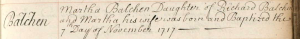 Batchen
Martha Batchen Daughter of Richard Batchen
and Martha his wife was born and Baptized the
7 Day of November 1717